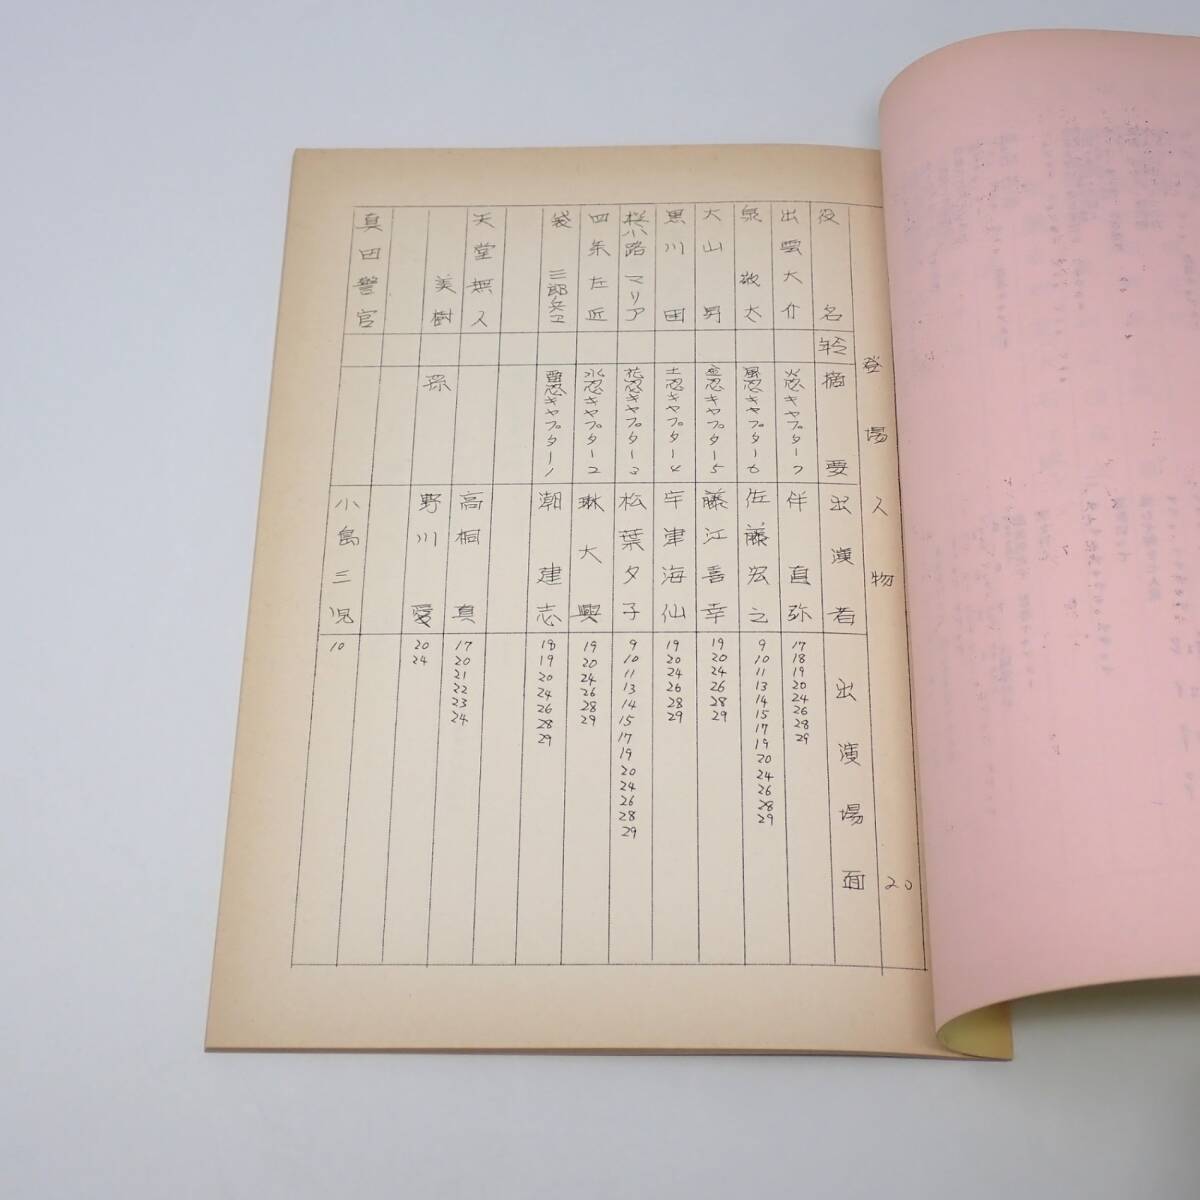 登場人物 20
役名 年令 摘要 出演者 出演場面
出雲大介 火忍キャプター7 伴直弥 17 18 19 20 24 26 28 29
泉敬太 風忍キャプター6 佐藤宏之 9 10 11 13 14 15 17 19 20 24 26 28 29
大山昇 金忍キャプター5 藤江喜幸 19 20 24 26 28 29
黒川田 土忍キャプター4 宇津海仙 19 20 24 26 28 29
桜小路マリア 花忍キャプター3 松葉夕子 9 10 11 13 14 15 17 19 20 24 26 28 29
四条左近 水忍キャプター2 琳大興 19 20 24 26 28 29
袋三郎兵ヱ 雷忍キャプター1 潮建志 18 19 20 24 26 28 29
天堂無人 高桐真 17 20 21 22 23 24
美樹 孫 野川愛 20 24
真田警官 小島三児 10